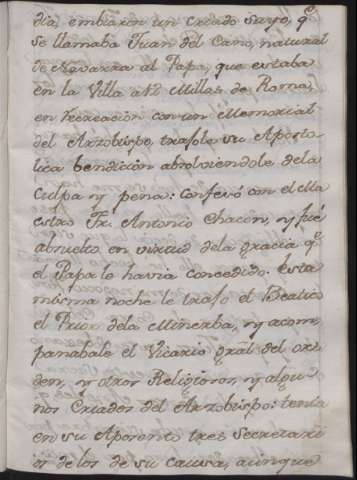 dia embiaron un criado suyo, q.e
se llamaba Juan del Cano, natural
de Navarra al Papa, que estaba
en la Villa Millas de Roma,
en recreacion con un Memorial
del Arzobispo, trajole su Aposto-
lica bendicion absolviendole dela
culpa y pena: confesó con el Ma
estro Fr. Antonio Chacon, y fué
absuelto en virtud dela gracia q.e
el Papa le havia concedido. Esta
misma noche le trajo el Beatico
el Prior dela Minerba, y acom
pañabale el Vicario gral del or
den, y otros Religiosos, y algu
nos Criados del Arzobispo: tenia
en su Aposento tres Secretari
os de los de su causa, aunque